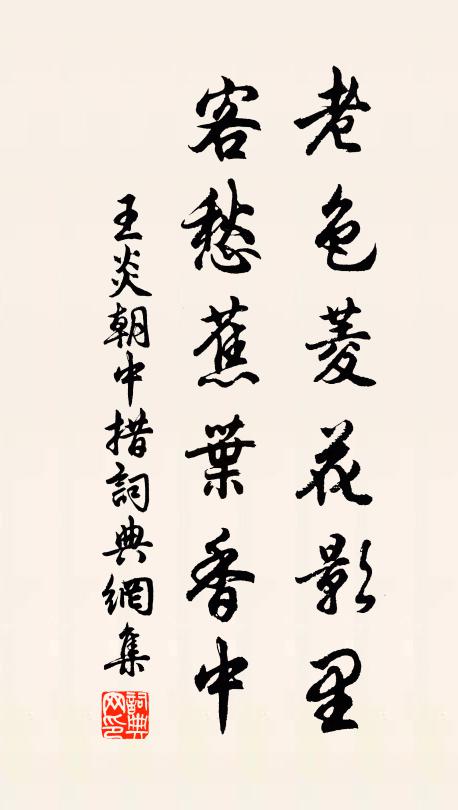 老色菱花影里
客愁蕉葉香中
王炎朝中措詞典網集
詞典网印